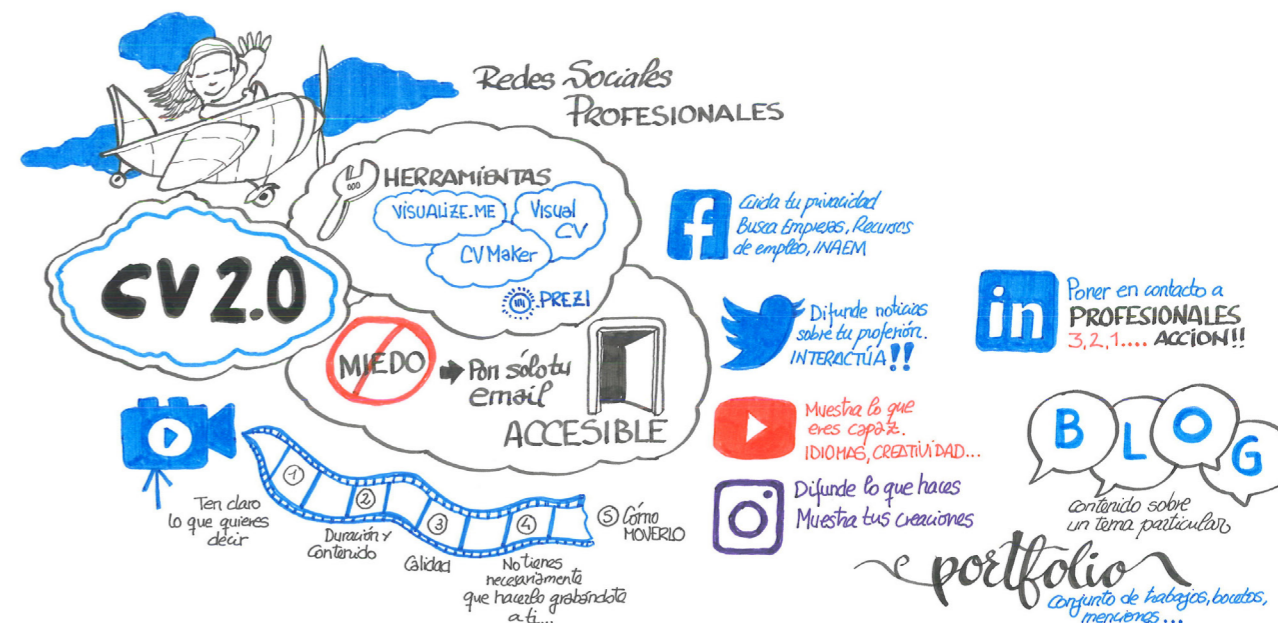 Redes Sociales
PROFESIONALES
HERRAMIENTAS
VISUALIZE.ME
Visual
CV
CVMaker
PREZI
CV 2.0
MIEDO
Pon sólo tu
email
ACCESIBLE
1
2
3
4
Ten claro
lo que quieres
decir
Duración y
Contenido
Calidad
No tienes
necesariamente
que hacerlo grabándote
a ti...
5 Cómo
MOVERLO
f
Cuida tu privacidad
Busca Empresas, Recursos
de empleo, INAEM
Difunde noticias
sobre tu profesión.
INTERACTÚA!!
Muestra lo que
eres capaz.
IDIOMAS, CREATIVIDAD...
Difunde lo que haces
Muestra tus creaciones
in
Poner en contacto a
PROFESIONALES
3,2,1.... ACCION!!
BLOG
contenido sobre
un tema particular
portfolio
conjunto de trabajos, bocetos,
menciones...